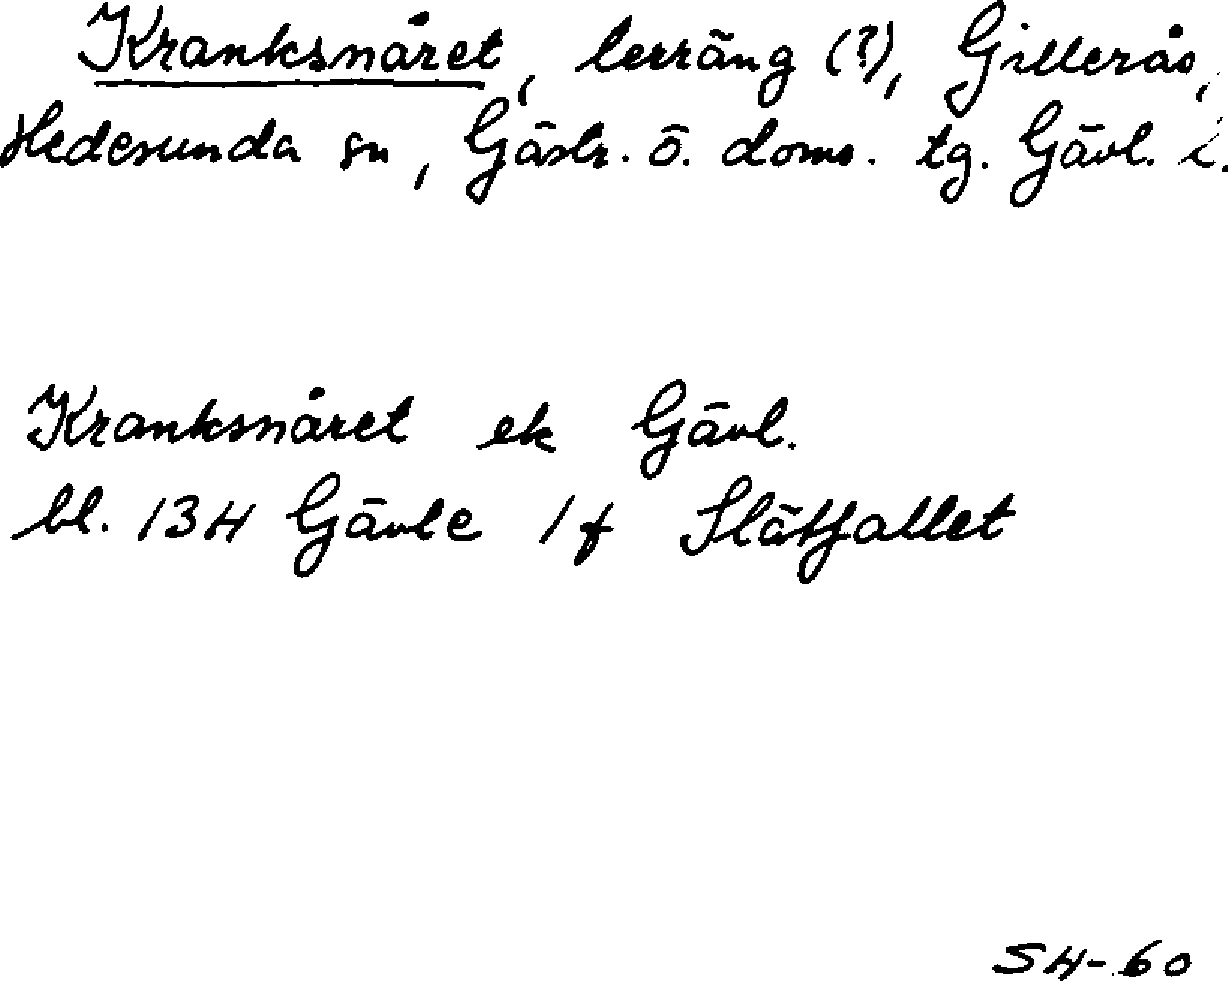 Kranksnåret, terräng (?), Gillerås,
Hedesunda sn, Gästr. ö. doms. tg. Gävl. l.
Kranksnåret ek Gävl.
bl. 13H Gävle 1f Slåtfallet
SH-60